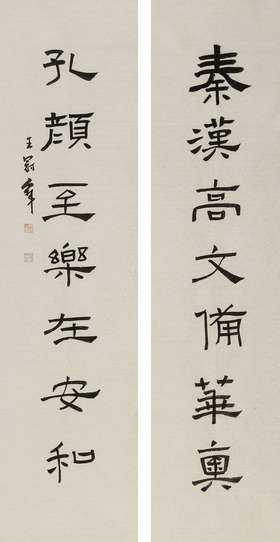 秦漢高文備華奧
孔顏至樂在安和